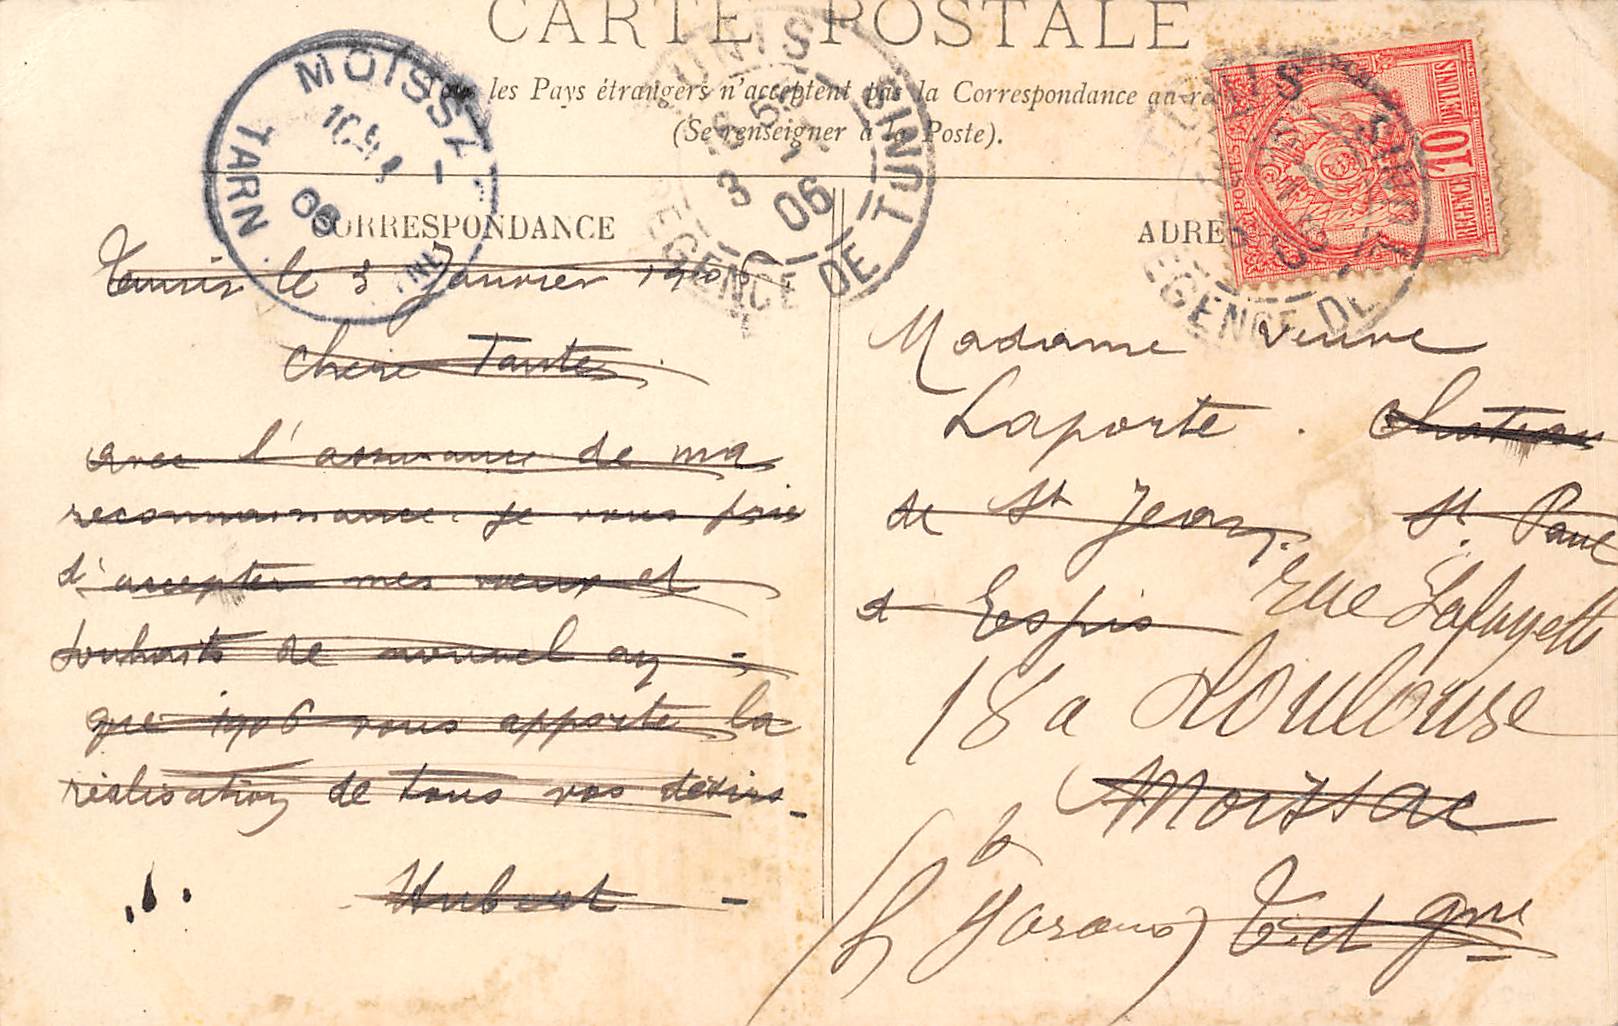 CARTE POSTALE
Tous les Pays étrangers n'acceptent pas la Correspondance au re
(Se renseigner à la Poste).
MOISSA
TARN
06
TUNIS
3 1
06
REGENCE DE TUNIS
TUNIS
REGENCE DE
POSTES
10
REGENCE DE TUNIS
CORRESPONDANCE
ADRE
Tunis le 3 Janvier 1906
Chere Tante
avec l'assurance de ma
reconnaissance. je vous prie
d'accepter mes voeux et
souhaits de nouvel an
que 1906 vous apporte la
réalisation de tous vos désirs
Hubert
Madame Veuve
Laporte. Chateau
de St Jean. St Paul
d'Espis rue Lafayette
18a Toulouse
Moissac
(h Garonne) T. et Gne